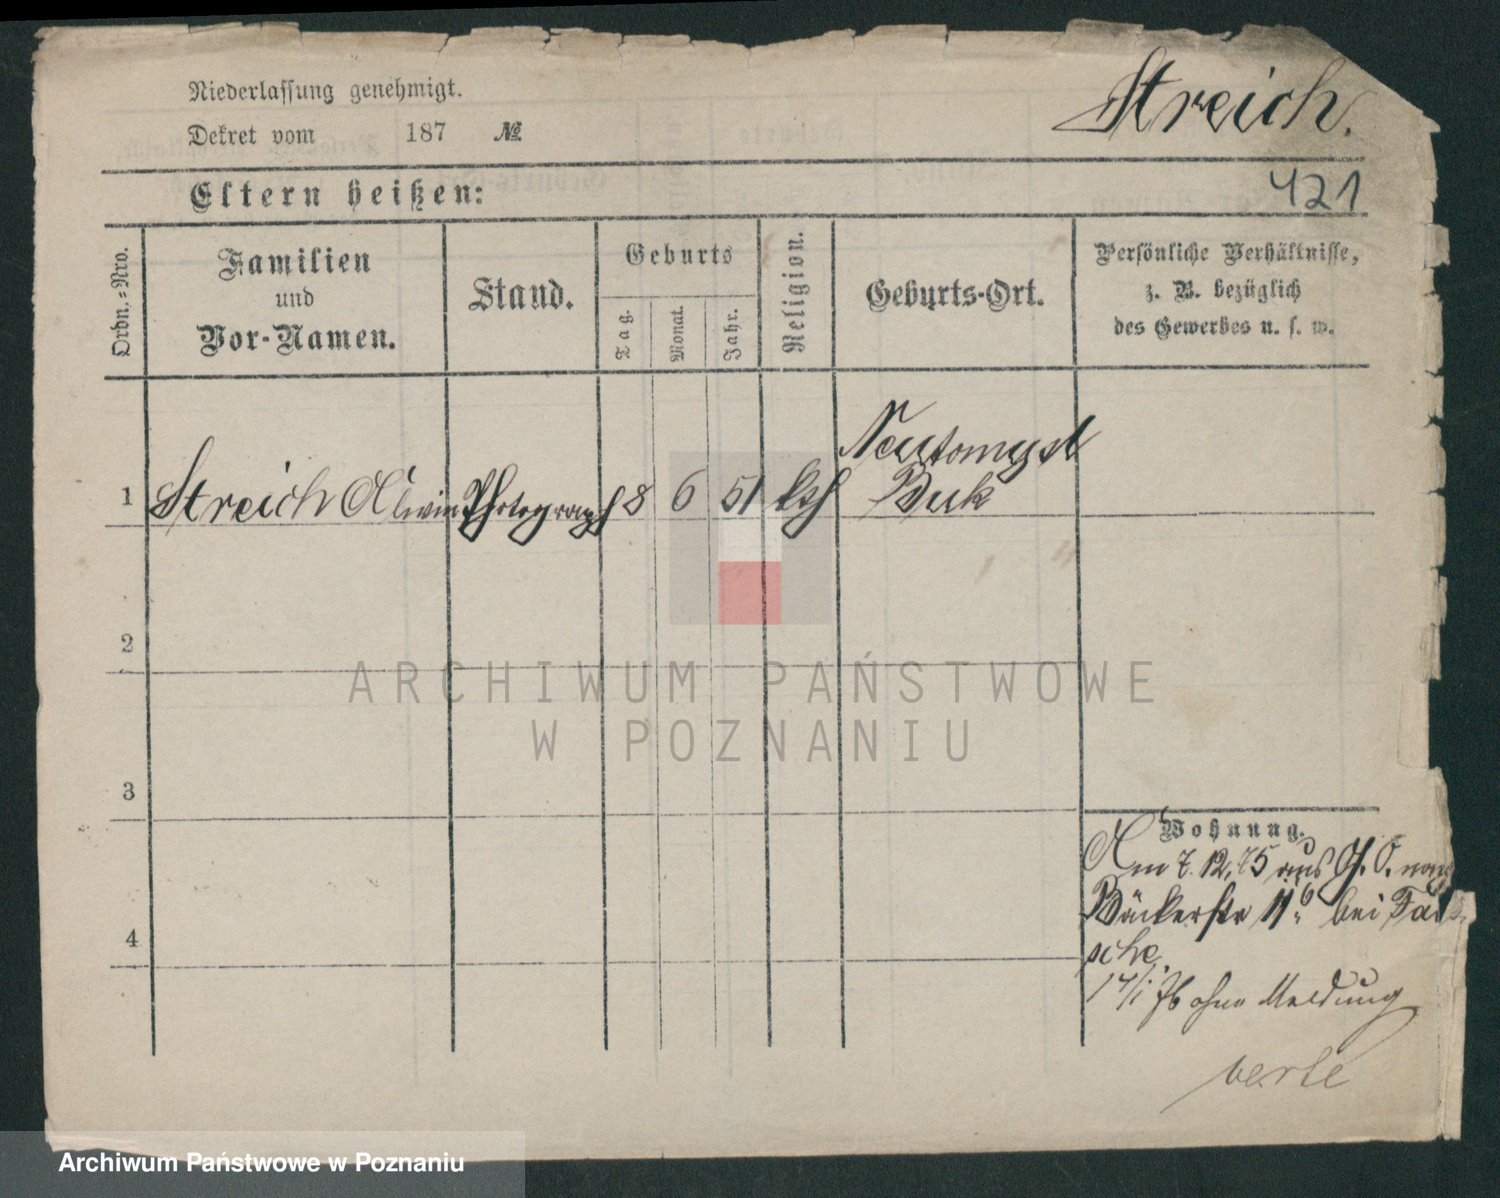 Niederlassung genehmigt.
Dekret vom 187 №
Streich.
Eltern heißen:
421
Ordn.=Nro.
Familien
und
Vor-Namen.
Stand.
Geburts
Tag.
Monat.
Jahr.
Religion.
Geburts-Ort.
Persönliche Verhältnisse,
z. B. bezüglich
des Gewerbes u. s. w.
Neutomysl
1 Streich Alwin Photograph 8 6 51 Buk
2
3
4
ARCHIWUM PAŃSTWOWE
W POZNANIU
Wohnung.
Am 7. 12. 75 aus
Bäckerstr 11 bei
sche.
17/1 ohne Meldung
verte
Archiwum Państwowe w Poznaniu